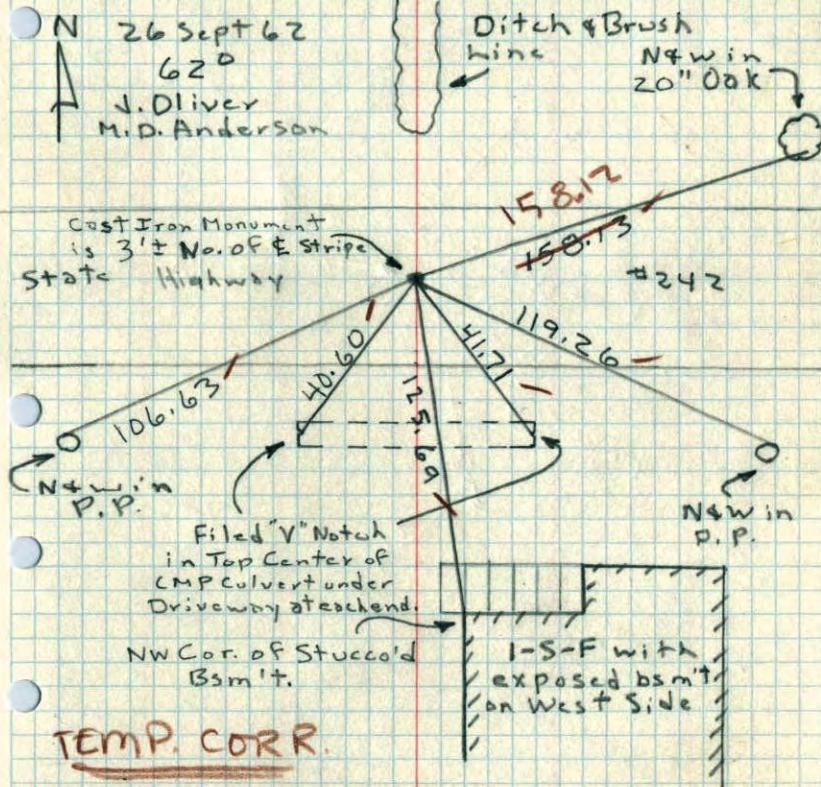 N
26 Sept 62
62°
J. Oliver
M.D. Anderson
Ditch & Brush
Line
N&W in
20" Oak
158.12
158.13
Cast Iron Monument
is 3'± No. of ℄ Stripe
State Highway
#242
106.63
40.60
125.69
41.71
119.26
N&W in
P.P.
N&W in
P.P.
Filed "V" Notch
in Top Center of
CMP Culvert under
Driveway at each end.
NW Cor. of Stucco'd
Bsm't.
1-S-F with
exposed bsm't
on West Side
TEMP. CORR.